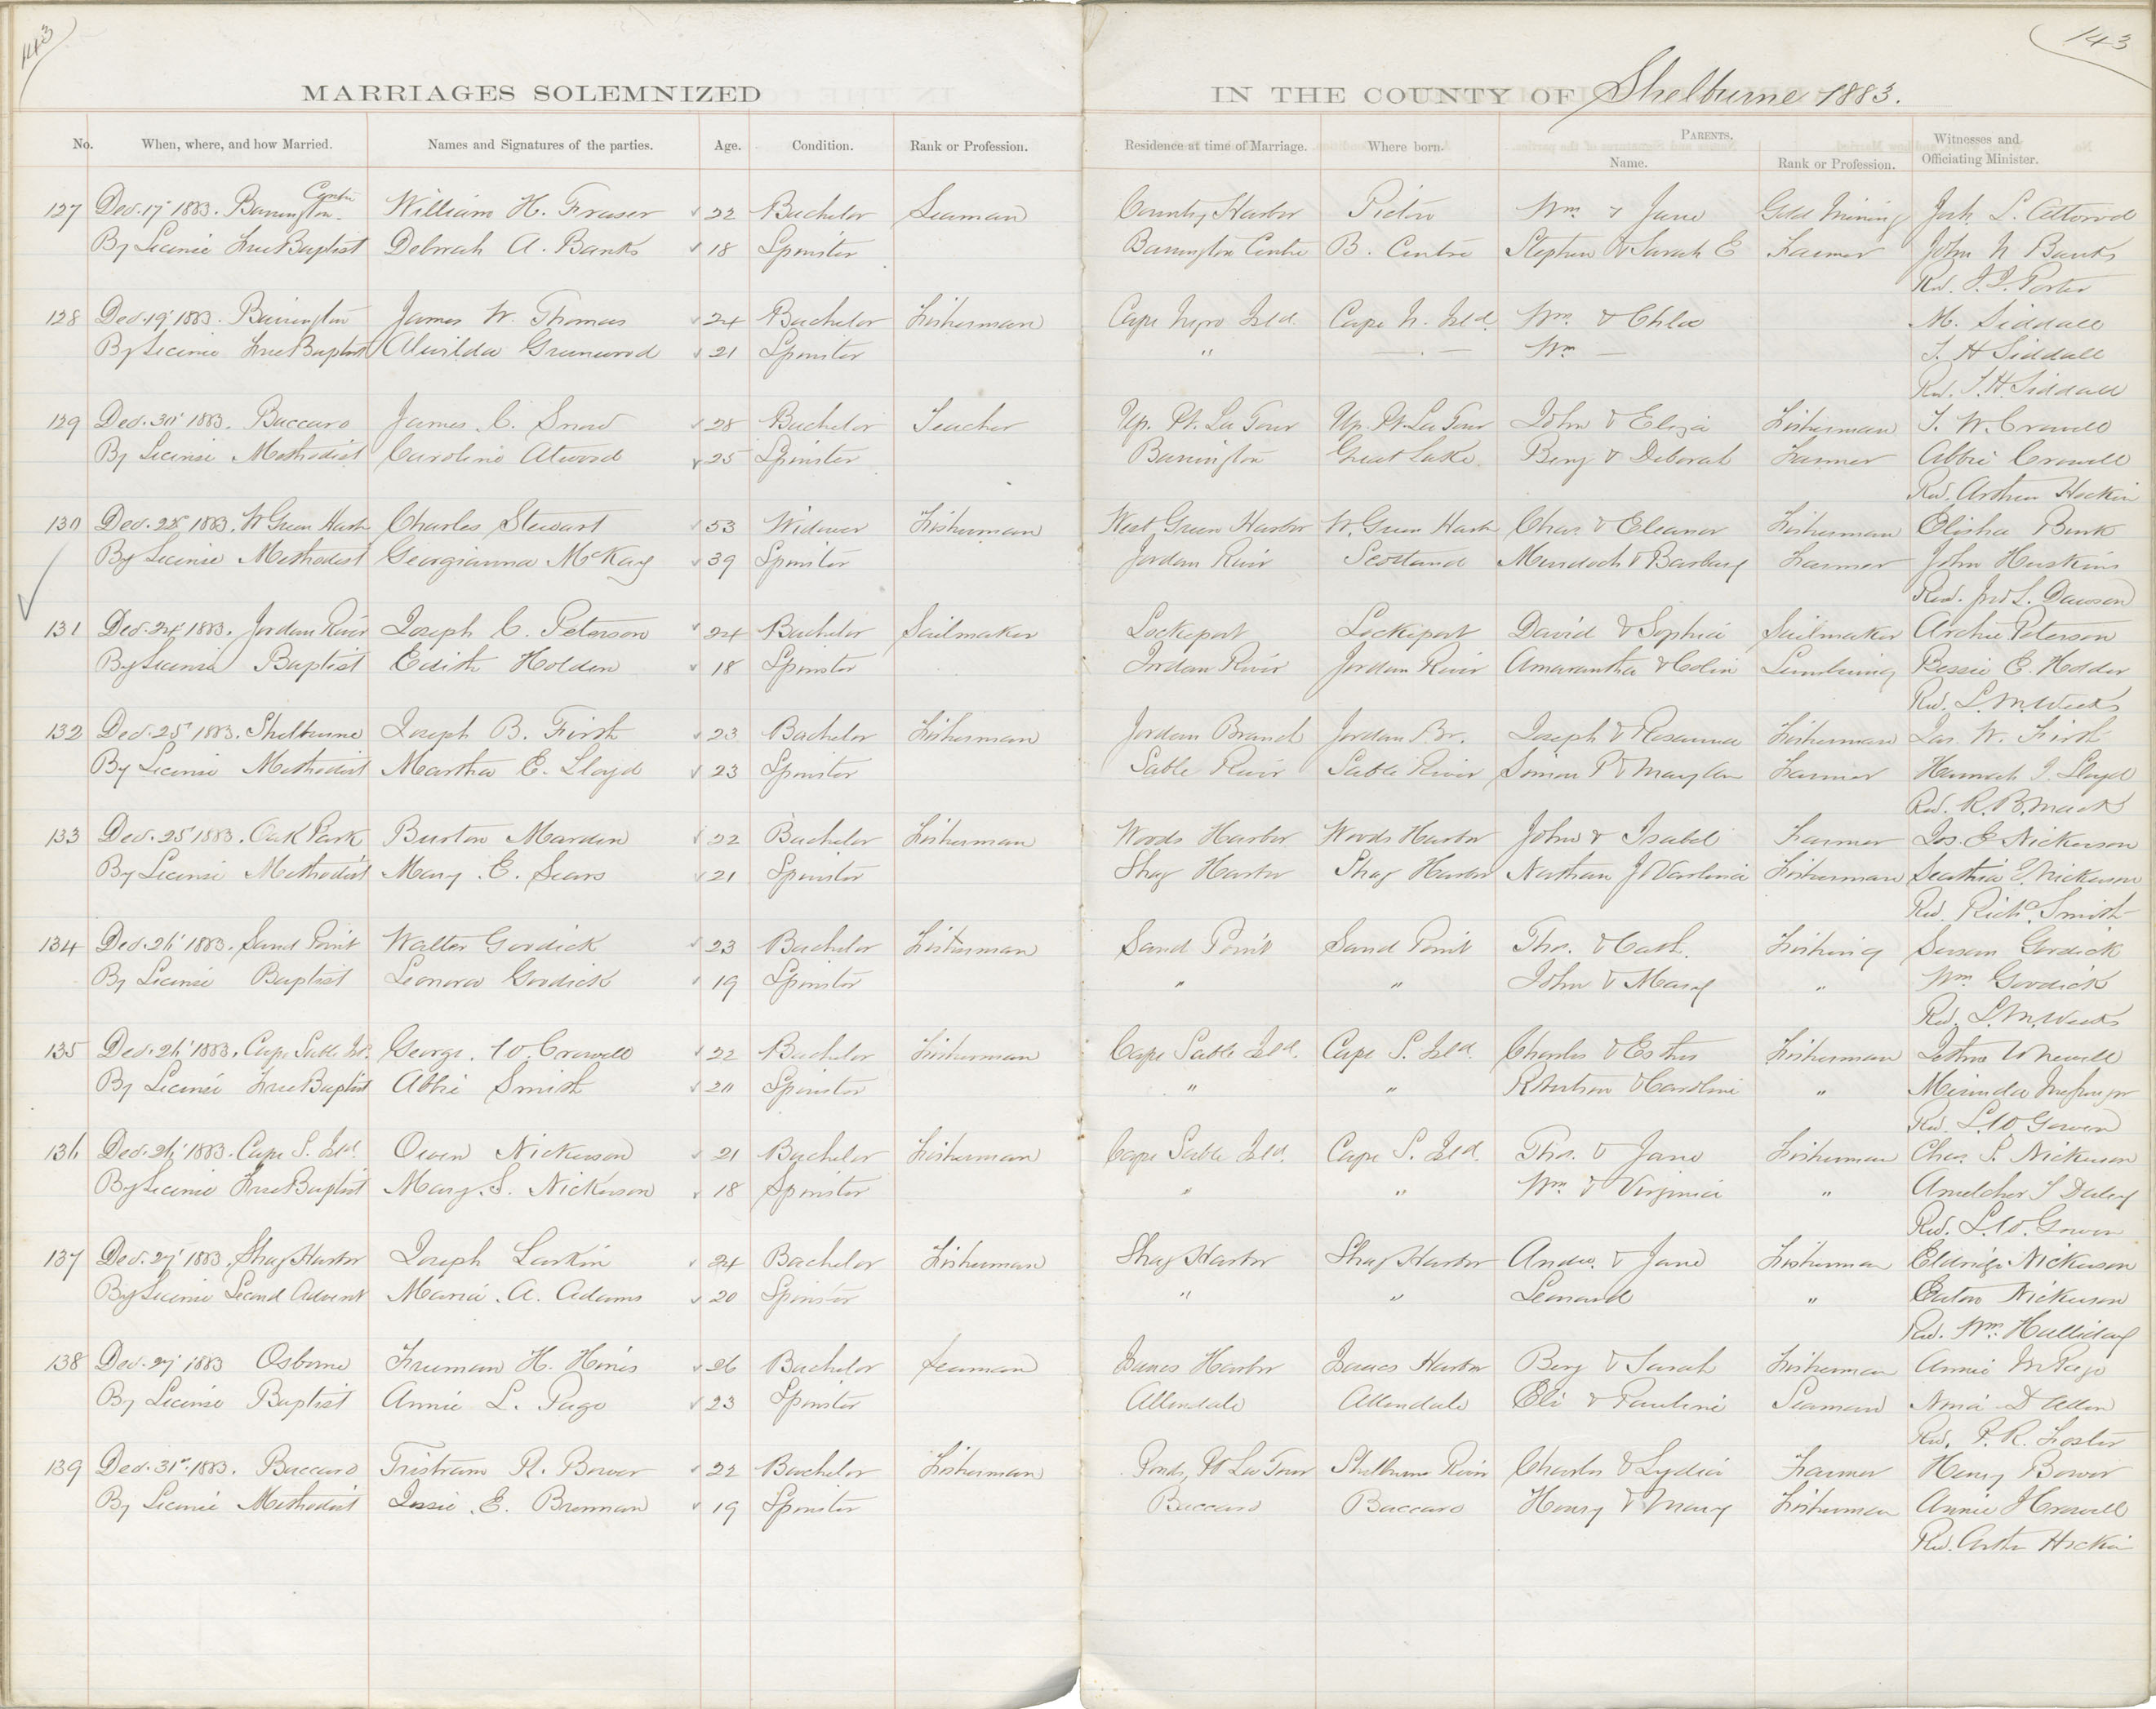 143
143
MARRIAGES SOLEMNIZED IN THE COUNTY OF Shelburne 1883.
No. When, where, and how Married. Names and Signatures of the parties. Age. Condition. Rank or Profession. Residence at time of Marriage. Where born. PARENTS. Name. Rank or Profession. Witnesses and Officiating Minister.
127 Dec. 17 1883. Barrington Centre William H. Fraser 22 Bachelor Seaman Country Harbor Pictou Wm. & Jane Gold Mining Josh. L. Attwood
By License Free Baptist Deborah A. Banks 18 Spinster Barrington Centre B. Centre Stephen & Sarah E Farmer John N Banks
Rev. Porter
128 Dec. 19 1883. Barrington James W. Thomas 24 Bachelor Fisherman Cape Negro Isld. Cape N. Isld. Wm. & Chloe M. Siddall
By License Free Baptist Alwilda Greenwood 21 Spinster " Wm. T. H Siddall
Rev. T. H. Siddall
129 Dec. 1883. Baccaro James C. Snow 28 Bachelor Teacher Up. Pt. La Tour Up. Pt. La Tour John & Eliza Fisherman T. W. Crowell
By License Methodist Caroline Atwood 25 Spinster Barrington Great Lake Benj & Deborah Farmer Abbie Crowell
Rev. Arthur Hockin
130 Dec. 28 1883. W Green Harb Charles Stewart 53 Widower Fisherman West Green Harbor W. Green Harb Chas & Eleanor Fisherman Elisha
By License Methodist Georgianna McKay 39 Spinster Jordan River Scotland Murdoch & Barbary Farmer John Huskins
Rev. Jno S. Dawson
131 Dec. 24 1883. Jordan River Joseph C. Peterson 24 Bachelor Sailmaker Lockeport Lockeport David & Sophia Sailmaker Archie Peterson
By License Baptist Edith Holden 18 Spinster Jordan River Jordan River Amarantha & Colin Lumbering Bessie E. Holder
Rev. L. M. Weeks
132 Dec. 25 1883. Shelburne Joseph B. Firth 23 Bachelor Fisherman Jordan Branch Jordan Br. Joseph & Rosanna Fisherman Jas. W. Firth
By License Methodist Martha E. Lloyd 23 Spinster Sable River Sable River Simon P & Mary Farmer Hannah J. Lloyd
Rev. R. B. Mack
133 Dec. 25 1883. Oak Park Burton Marden 22 Bachelor Fisherman Woods Harbor Woods Harbor John & Isabel Farmer Jos. E Nickerson
By License Methodist Mary E. Sears 21 Spinster Shag Harbor Shag Harbor Nathan J & Fisherman Nickerson
Rev. Richd. Smith
134 Dec. 26 1883. Sand Point Walter Goodick 23 Bachelor Fisherman Sand Point Sand Point Thos. & Cath. Fishing Susan Goodick
By License Baptist Leonora Goodick 19 Spinster " " John & Mary " Wm. Goodick
Rev. L. M. Weeks
135 Dec. 26 1883. Cape Sable Isd. George W. Crowell 22 Bachelor Fisherman Cape Sable Isld. Cape S. Isld. Charles & Esther Fisherman
By License Free Baptist Abbie Smith 20 Spinster " " & Caroline "
Rev. L. W Gowen
136 Dec. 26 1883. Cape S. Isld. Owen Nickerson 21 Bachelor Fisherman Cape Sable Isld. Cape S. Isld. Thos. & Jane Fisherman Chas. S. Nickerson
By License Free Baptist Mary S. Nickerson 18 Spinster " " Wm. & Virginia "
Rev. L. W. Gowen
137 Dec. 27 1883. Shag Harbor Joseph Larkin 24 Bachelor Fisherman Shag Harbor Shag Harbor Andw. & Jane Fisherman Eldridge Nickerson
By License Second Advent Maria A. Adams 20 Spinster " " Leonard " Nickerson
Rev. Wm. Halliday
138 Dec. 27 1883 Osborne Freeman H. Hines 26 Bachelor Seaman Isaacs Harbor Isaacs Harbor Benj & Sarah Fisherman Annie M Page
By License Baptist Annie L. Page 23 Spinster Allendale Allendale Eli & Pauline Seaman D Allen
Rev. P. R. Foster
139 Dec. 31st. 1883. Baccaro Tristram R. Bower 22 Bachelor Fisherman Pt La Tour Shelburne River Charles & Lydia Farmer Henry Bower
By License Methodist Jessie E. Brennan 19 Spinster Baccaro Baccaro Henry & Mary Fisherman Annie Crowell
Rev. Arthr Hockin